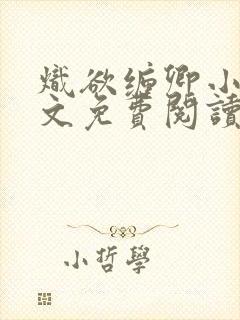 熾欲緬卿小
文免費閱讀
小哲學